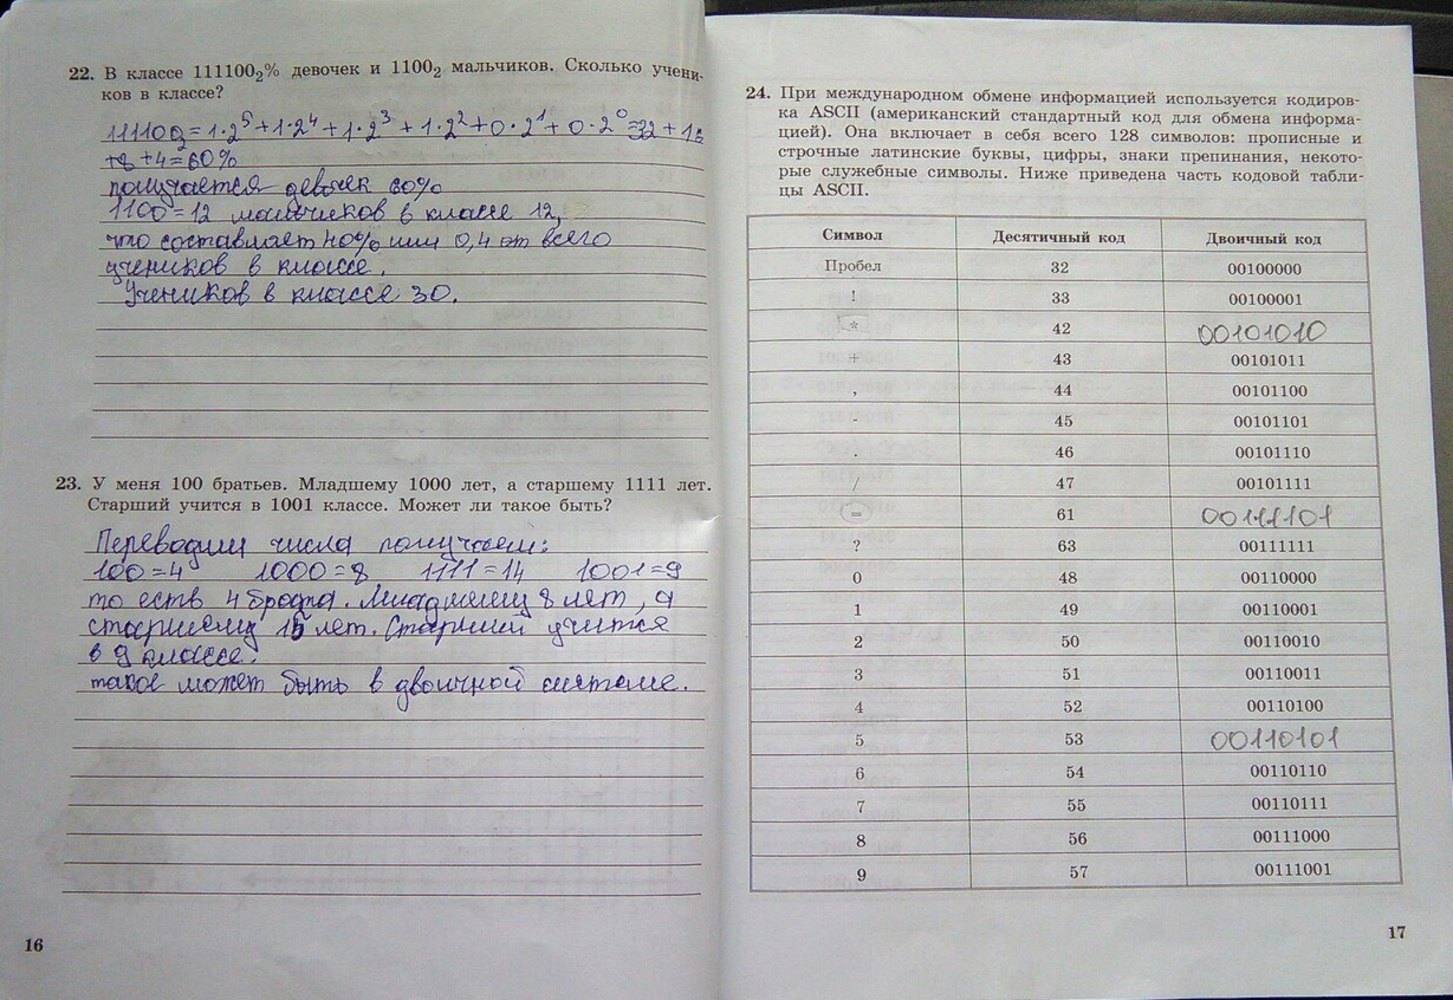 22. В классе 111100₂% девочек и 1100₂ мальчиков. Сколько учени-
ков в классе?
111100₂=1·2⁵+1·2⁴+1·2³+1·2²+0·2¹+0·2⁰=32+16
+8+4=60%
получается девочек 60%
1100=12 мальчиков в классе 12,
что составляет 40% или 0,4 от всего
учеников в классе.
Учеников в классе 30.
23. У меня 100 братьев. Младшему 1000 лет, а старшему 1111 лет.
Старший учится в 1001 классе. Может ли такое быть?
Переводим числа получаем:
100=4 1000=8 1111=14 1001=9
то есть 4 брата. Младшему 8 лет, а
старшему 15 лет. Старший учится
в 9 классе.
такое может быть в двоичной системе.
16
24. При международном обмене информацией используется кодиров-
ка ASCII (американский стандартный код для обмена информа-
цией). Она включает в себя всего 128 символов: прописные и
строчные латинские буквы, цифры, знаки препинания, некото-
рые служебные символы. Ниже приведена часть кодовой табли-
цы ASCII.
Символ Десятичный код Двоичный код
Пробел 32 00100000
! 33 00100001
* 42 00101010
+ 43 00101011
, 44 00101100
- 45 00101101
. 46 00101110
/ 47 00101111
= 61 00111101
? 63 00111111
0 48 00110000
1 49 00110001
2 50 00110010
3 51 00110011
4 52 00110100
5 53 00110101
6 54 00110110
7 55 00110111
8 56 00111000
9 57 00111001
17